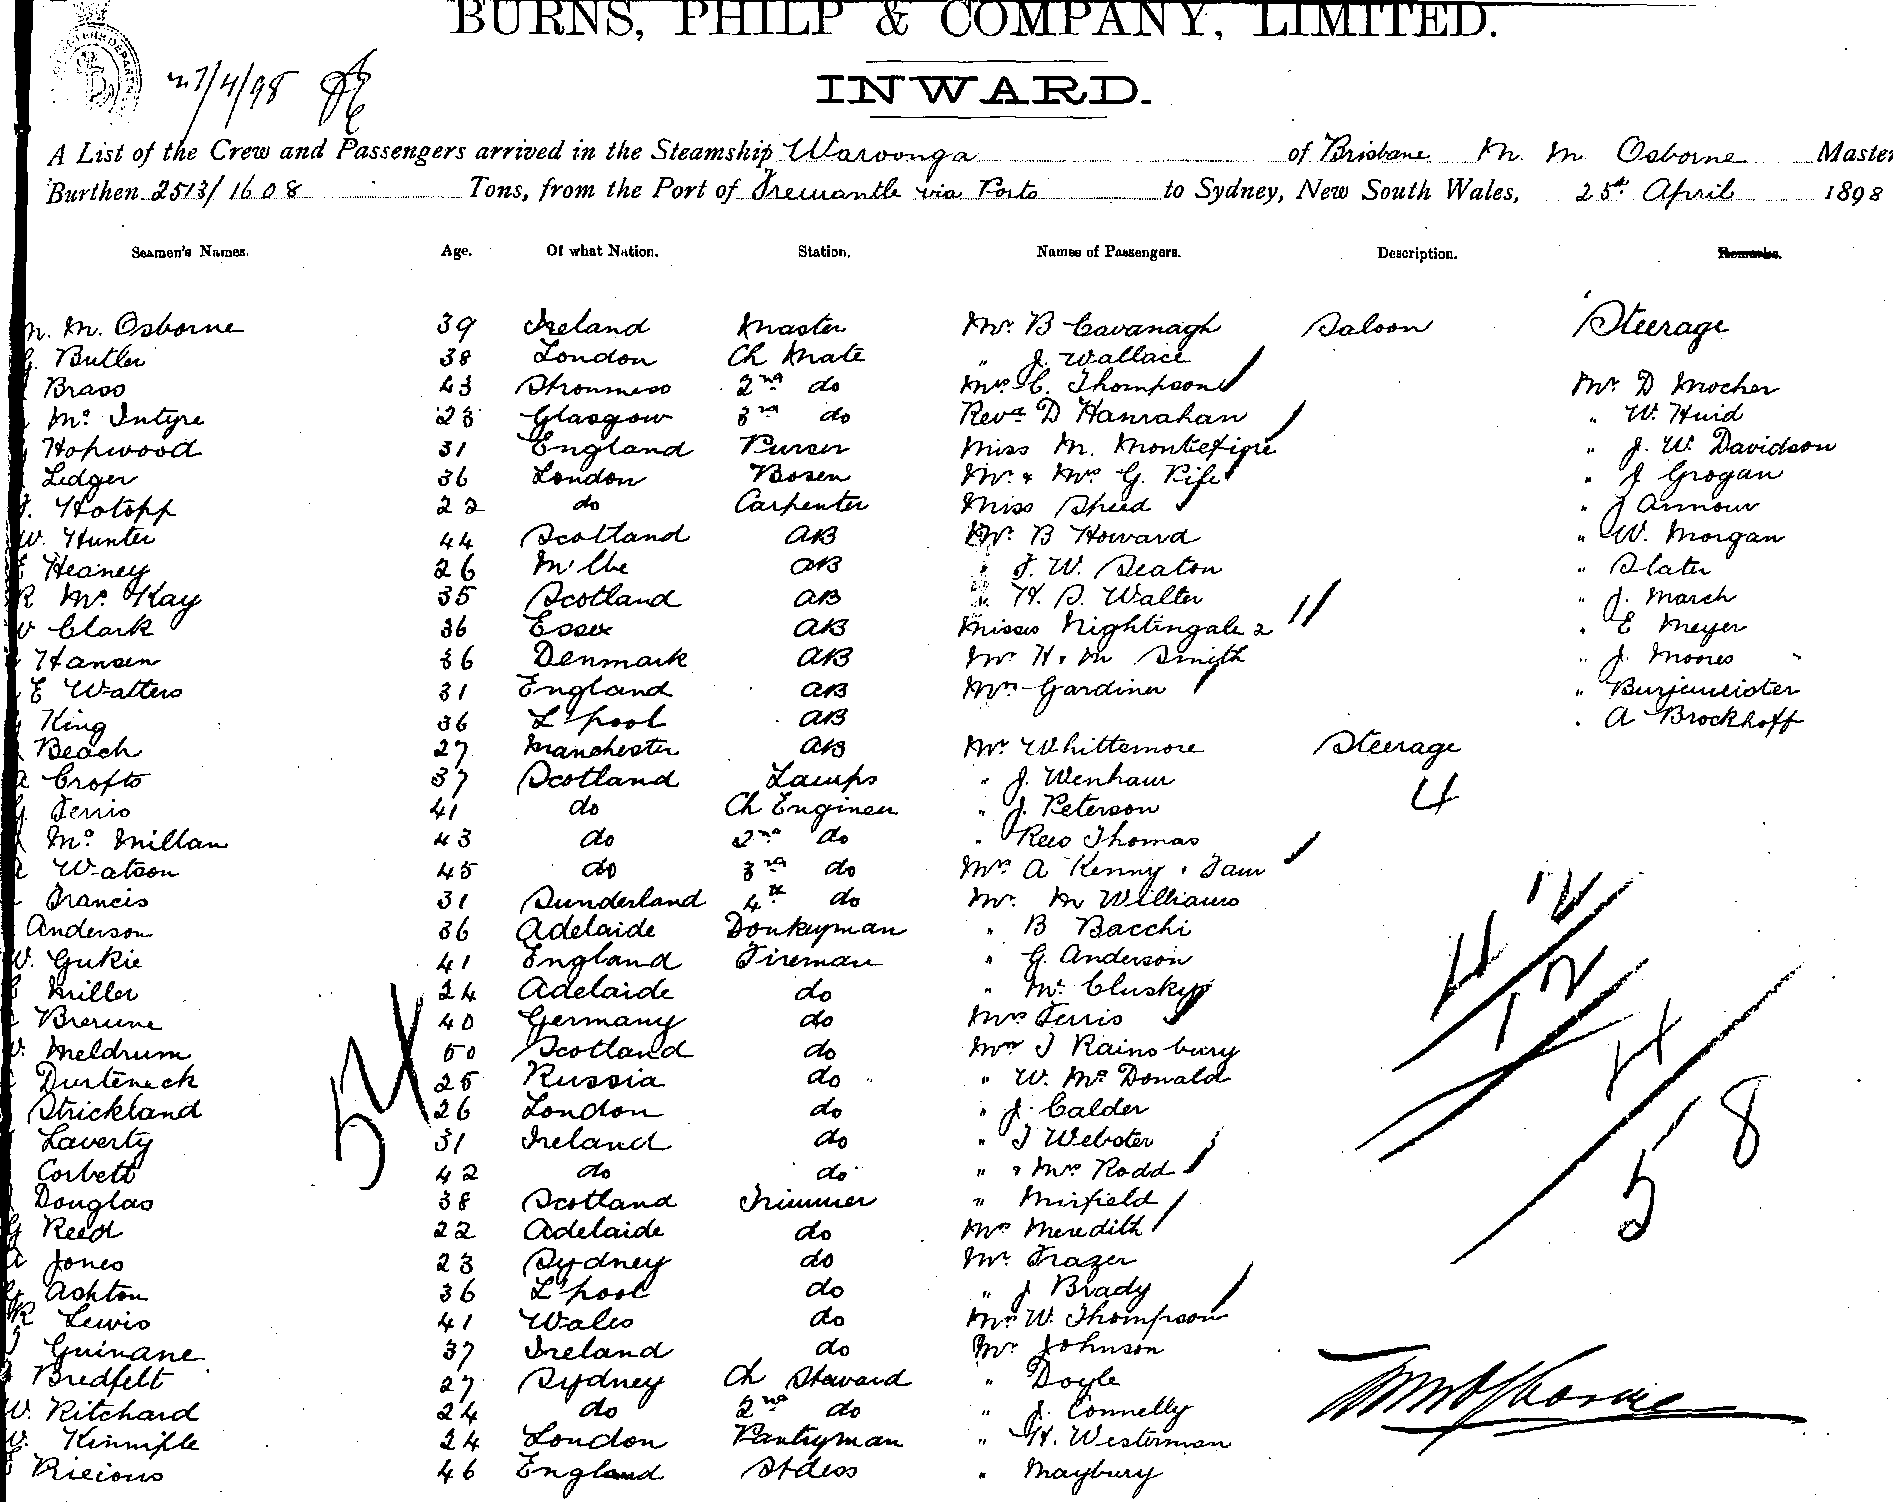 BURNS, PHILP & COMPANY, LIMITED.
INWARD.
27/4/98
A List of the Crew and Passengers arrived in the Steamship Waroonga of Brisbane M. M Osborne Master
Burthen 2513/1608 Tons, from the Port of Fremantle via Ports to Sydney, New South Wales, 25th April 1898
Seamen's Names. Age. Of what Nation. Station. Names of Passengers. Description. Remarks.
M. M. Osborne 39 Ireland Master Mr. B Cavanagh Saloon Steerage
G. Butler 38 London Ch Mate " J. Wallace
Brass 43 Stromness 2nd do Mrs C. Thompson Mr D Mocher
Mc Intyre 23 Glasgow 3rd do Revd D Hanrahan " W. Huid
Hopwood 31 England Purser Miss M. Montefiore " J. W. Davidson
Ledger 36 London Bosen Mr. & Mrs G. Fife " J Grogan
Hotopp 22 do Carpenter Miss Speed " J Armour
W. Hunter 44 Scotland AB Mr. B Howard " W. Morgan
Heaney 26 Mlbe AB " F. W. Seaton " Slater
R Mc Kay 35 Scotland AB " H. S. Walter " J. March
Clark 36 Essex AB Misses Nightingale 2 " E Meyer
Hansen 36 Denmark AB Mr H. M Smith " J. Moores
E Walters 31 England AB Mrs Gardiner " Burjemeister
King 36 L'pool AB " A Brockhoff
Beach 27 Manchester AB Mr Whittemore Steerage
A Crofts 37 Scotland Lamps " J. Wenham 4
G. Ferris 41 do Ch Engineer " J. Peterson
Mc Millan 43 do 2nd do " Rees Thomas
Watson 45 do 3rd do Mrs A Kenny & Fam
Francis 31 Sunderland 4th do Mr. M Williams
Anderson 36 Adelaide Donkeyman " B Bacchi
W. Gukie 41 England Fireman " G. Anderson
Miller 24 Adelaide do " Mc Clusky
40 Germany do Mrs Ferris
Meldrum 50 Scotland do Mr J Rainsbury
Durteneck 25 Russia do " W. Mc Donald
Strickland 26 London do " J. Calder
Laverty 31 Ireland do " J Webster
Corbett 42 do do " & Mrs Rodd
Douglas 38 Scotland Trimmer " Mirfield
G Reed 22 Adelaide do Mrs Meredith
A Jones 23 Sydney do Mr. Frazer
G Ashton 36 L'pool do " J Brady
R Lewis 41 Wales do Mrs W. Thompson
Guinane 37 Ireland do Mr Johnson
Bredfelt 27 Sydney Ch Steward " Doyle
W. Ritchard 24 do 2nd do " J. Connelly
Kinniple 24 London Pantryman " H. Westerman
46 England Stdess " Maybury
54
12
12
58
M M Osborne